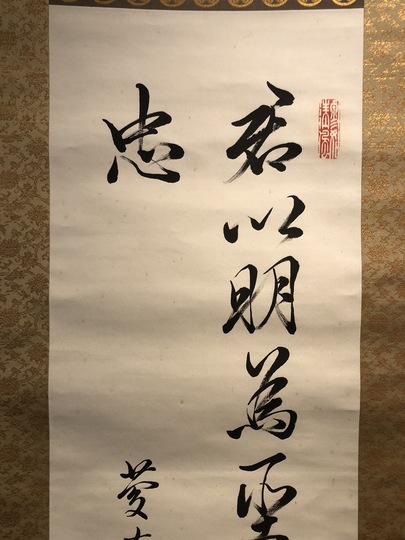 君以明為聖
忠